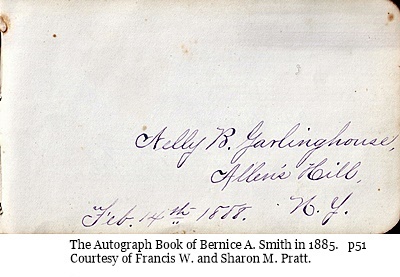 Nelly B. Garlinghouse,
Allen's Hill,
Feb. 14th 1888. N. Y.
The Autograph Book of Bernice A. Smith in 1885. p51
Courtesy of Francis W. and Sharon M. Pratt.